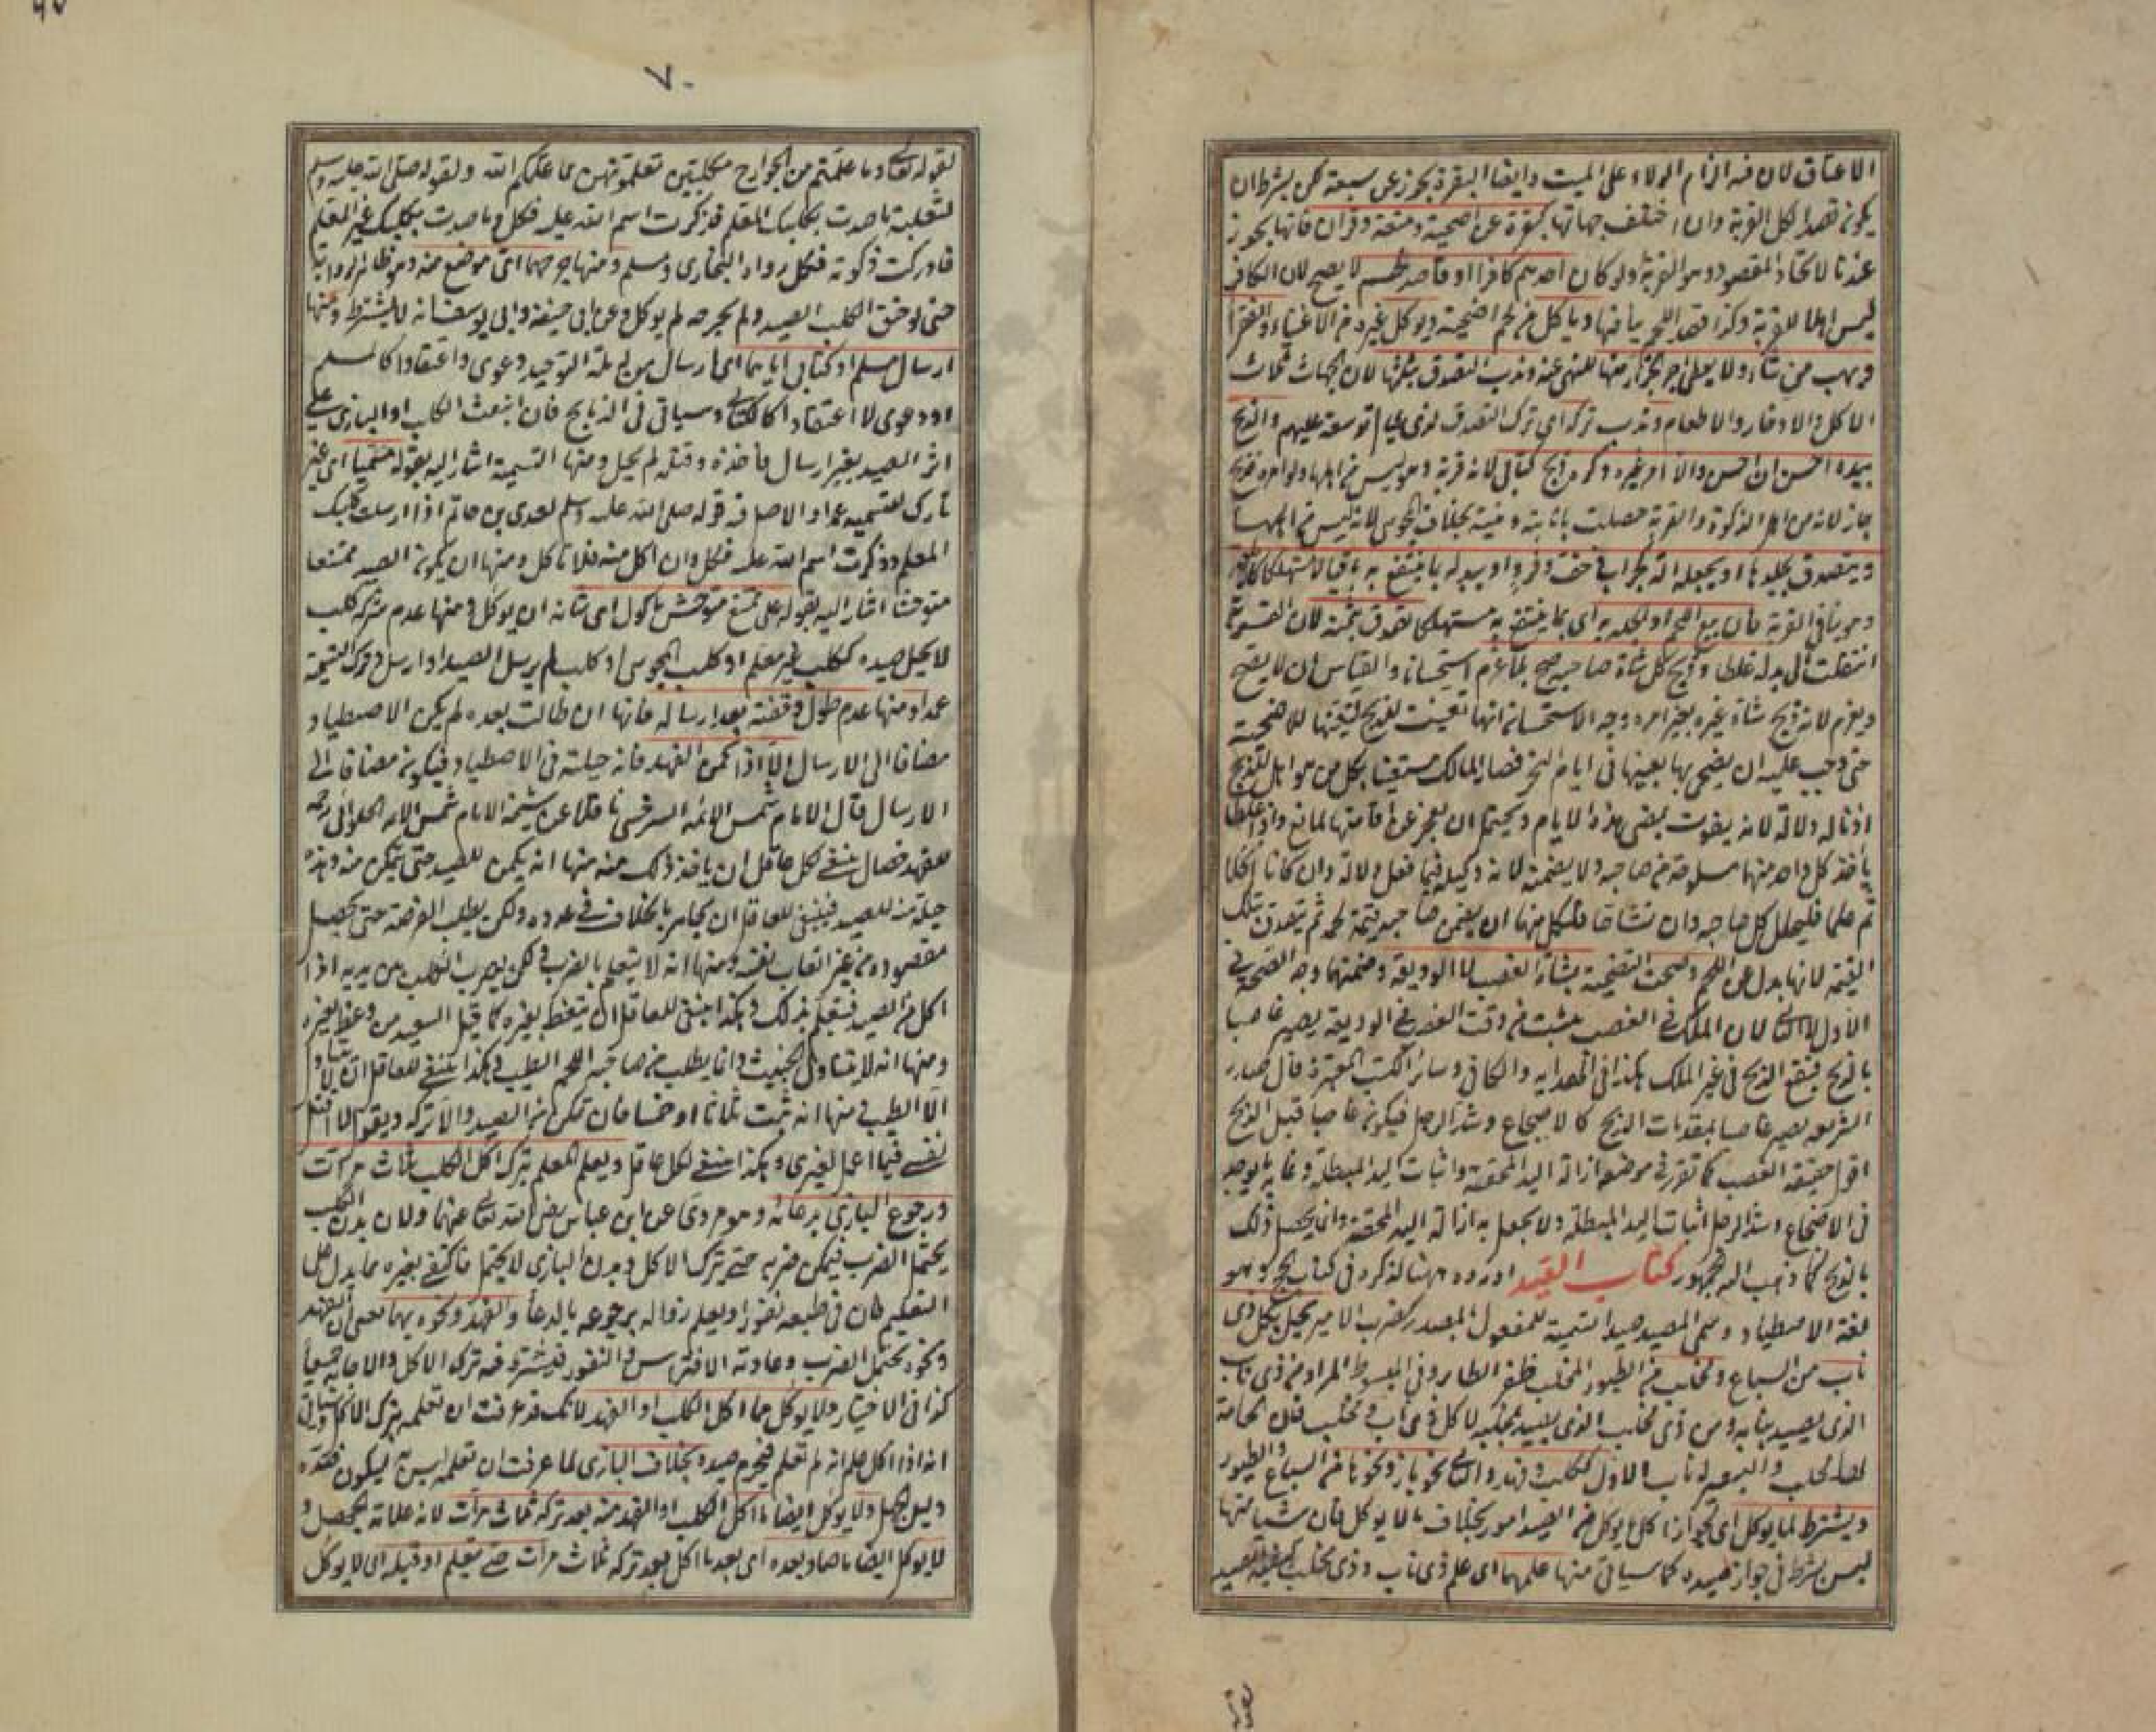 الاعتاق لان فيه الزام الولاء على الميت وايضا البقرة يجوز عن سبعة لكن بشرط ان
يكون قصد الكل القربة وان اختلف جهاتها كبقرة عن اضحية ومتعة وقران فانها يجوز
عندنا لاتحاد المقصود وهو القربة ولو كان احدهم كافرا او قاصد لحم لا يصح لان الكافر
ليس اهلا للقربة وكذا قصد اللحم ينافيها وياكل من لحم اضحية ويوكل غيره من الاغنياء والفقرا
ويهب من شاء ولا يعطى اجر الجزار منها للنهي عنه وندب التصدق بثلثها لان الجهات ثلاث
الاكل والادخار والاطعام وندب تركه اى ترك التصدق لذى عيال توسعة عليهم والذبح
بيده احسن ان احسن والا امر غيره وكره ذبح كتابى لانه قربة وهو ليس من اهلها ولو امره فذبح
جاز لانه من اهل الذكوة والقربة حصلت بانابته ونيته بخلاف المجوسى لانه ليس من اهلها
ويتصدق بجلدها او يجعله الة كجراب وخف وفرو او يبدله بما ينتفع به باقيا لا مستهلكا
فان بيع اللحم او الجلد به اى بما ينتفع به مستهلكا تصدق بثمنه لان القربة
انتقلت الى بدله غلطا وذبح كل شاة صاحبه صح بلا غرم استحسانا والقياس ان لا يصح
ويغرم لانه ذبح شاة غيره بغير امره وجه الاستحسان انها تعينت للذبح لتعينها للاضحية
حتى وجب عليه ان يضحى بها بعينها فى ايام النحر فصار المالك مستعينا بكل من هو اهل للذبح
اذنا له دلالة لانه يفوت بمضى هذه الايام ويحتمل ان يعجز عن اقامتها لمانع واذا غلطا
ياخذ كل واحد منهما مسلوخة من صاحبه ولا يضمنه لانه وكيله فيما فعل دلالة وان كانا اكلا
ثم علما فليحلل كل صاحبه وان تشاحا فلكل منهما ان يضمن صاحبه قيمة لحمه ثم يتصدق بتلك
القيمة لانها بدل عن اللحم وصحت التضحية بشاة الغصب لا الوديعة وضمنها وجه الصحة فى
الاول لا الثانى لان الملك فى الغصب يثبت من وقت الغصب وفى الوديعة يصير غاصبا
بالذبح فيقع الذبح فى غير الملك هكذا فى الهداية والكافى وسائر الكتب المعتبرة قال صدر
الشريعة يصير غاصبا بمقدمات الذبح كالاضجاع وشد الرجل فيكون غاصبا قبل الذبح
اقول حقيقة الغصب كما تقرر فى موضعه ازالة اليد المحقة واثبات اليد المبطلة وغاية ما يوجد
فى الاضجاع وشد الرجل اثبات اليد المبطلة ولا يحصل به ازالة اليد المحقة وانما يحصل ذلك
بالذبح كما ذهب اليه الجمهور كتاب الصيد اورده ههنا لذكره فى كتاب الحج وهو
لغة الاصطياد وسمى المصيد صيدا تسمية للمفعول بالمصدر كضرب الامير يحل بكل ذى
ناب من السباع ومخلب من الطيور المخلب ظفر الطاير وفى المبسوط المراد من ذى ناب
الذى يصيد بنابه ومن ذى مخلب الذى يصيد بمخلبه لا كل ذى ناب ومخلب فان الحمامة
لها مخلب والبعير له ناب الاول ككلب وفهد والثانى نحو باز ونحوها من السباع والطيور
ويشترط لما يوكل اى لجواز اكل ما يوكل من الصيد امور بخلاف ما لا يوكل فان شيئا منها
ليس بشرط فى جواز صيده كما سياتى منها علمهما اى علم ذى ناب وذى مخلب
٧٠
لقوله تعالى وما علمتم من الجوارح مكلبين تعلمونهن مما علمكم الله ولقوله صلى الله عليه وسلم
لثعلبة ما صدت بكلبك المعلم فذكرت اسم الله عليه فكل وما صدت بكلبك غير المعلم
فادركت ذكوته فكل رواه البخارى ومسلم ومنها جرحهما اى موضع منه وهو ظاهر الرواية
حتى لو خنق الكلب الصيد ولم يجرحه لم يوكل وعن ابى حنيفة وابى يوسف انه لا يشترط ومنها
ارسال مسلم او كتابى اياهما اى ارسال من له ملة التوحيد دعوى واعتقادا كالمسلم
او دعوى لا اعتقادا كالكتابى وسياتى فى الذبايح فان انبعث الكلب او البازى على
اثر الصيد بغير ارسال فاخذه وقتله لم يحل ومنها التسمية اشار اليه بقوله مسميا اى غير
تارك للتسمية عمدا والاصل فيه قوله صلى الله عليه وسلم لعدى بن حاتم اذا ارسلت كلبك
المعلم وذكرت اسم الله عليه فكل وان اكل منه فلا تاكل ومنها ان يكون الصيد ممتنعا
متوحشا اشار اليه بقوله على ممتنع متوحش ماكول اى شانه ان يوكل ومنها عدم شركة كلب
لا يحل صيده ككلب غير معلم او كلب المجوسى او كلب لم يرسل الصيد او ارسل وترك التسمية
عمدا ومنها عدم طول وقفته بعد ارساله فانها ان طالت بعده لم يكن الاصطياد
مضافا الى الارسال الا اذا كمن الفهد فانه حيلته فى الاصطياد فيكون مضافا الى
الارسال قال الامام شمس الائمة السرخسى ناقلا عن شيخه الامام شمس الائمة الحلوائى رحمه
للفهد خصال ينبغى لكل عاقل ان ياخذ ذلك منه منها انه يكمن للصيد حتى يتمكن منه وهذه
حيلة منه للصيد فينبغى للعاقل ان لا يجاهر بالخلاف فى عدوه ولكن يطلب الفرصة حتى يحصل
مقصوده من غير اتعاب نفسه ومنها انه لا يتعلم بالضرب ولكن يضرب الكلب من يديه اذا
اكل من الصيد فيتعلم بذلك وهكذا ينبغى للعاقل ان يتعظ بغيره كما قيل السعيد من وعظ بغيره
ومنها انه لا يتناول الخبيث وانما يطلب من صاحبه اللحم الطيب وهكذا ينبغى للعاقل ان لا يتناول
الا الطيب ومنها انه يثب ثلاثا او خمسا فان تمكن من الصيد والا تركه ويقول لا اقتل
نفسى فيما اعمل لغيرى وهكذا ينبغى لكل عاقل ويعلم المعلم بترك اكل الكلب ثلاث مرات
ورجوع البازى بدعائه وهو مروى عن ابن عباس رضى الله تعالى عنهما ولان بدن الكلب
يحتمل الضرب فيمكن ضربه حتى يترك الاكل وبدن البازى لا يحتمل فاكتفى بغيره مما يدل على
التعليم فان فى طبعه نفورا ويعلم زواله برجوعه بالدعاء والفهد ونحوه بهما يعنى ان الفهد
ونحوه يحتمل الضرب وعادته الافتراس والنفور فيشترط فيه ترك الاكل والاجابة جميعا
كذا فى الاختيار ولا يوكل مما اكل الكلب او الفهد لانك قد عرفت ان تعلمه بترك الاكل
انه اذا اكل علم انه لم تعلم فيحرم صيده بخلاف البازى لما عرفت ان تعلمه ليس به ليكون فقده
دليل الجهل ولا يوكل ايضا ما اكل الكلب او الفهد منه بعد تركه ثلاث مرات لانه علامة الجهل و
لا يوكل ايضا ما صاد بعده اى بعد ما اكل بعد تركه ثلاث مرات حتى يتعلم او قبله اى لا يوكل